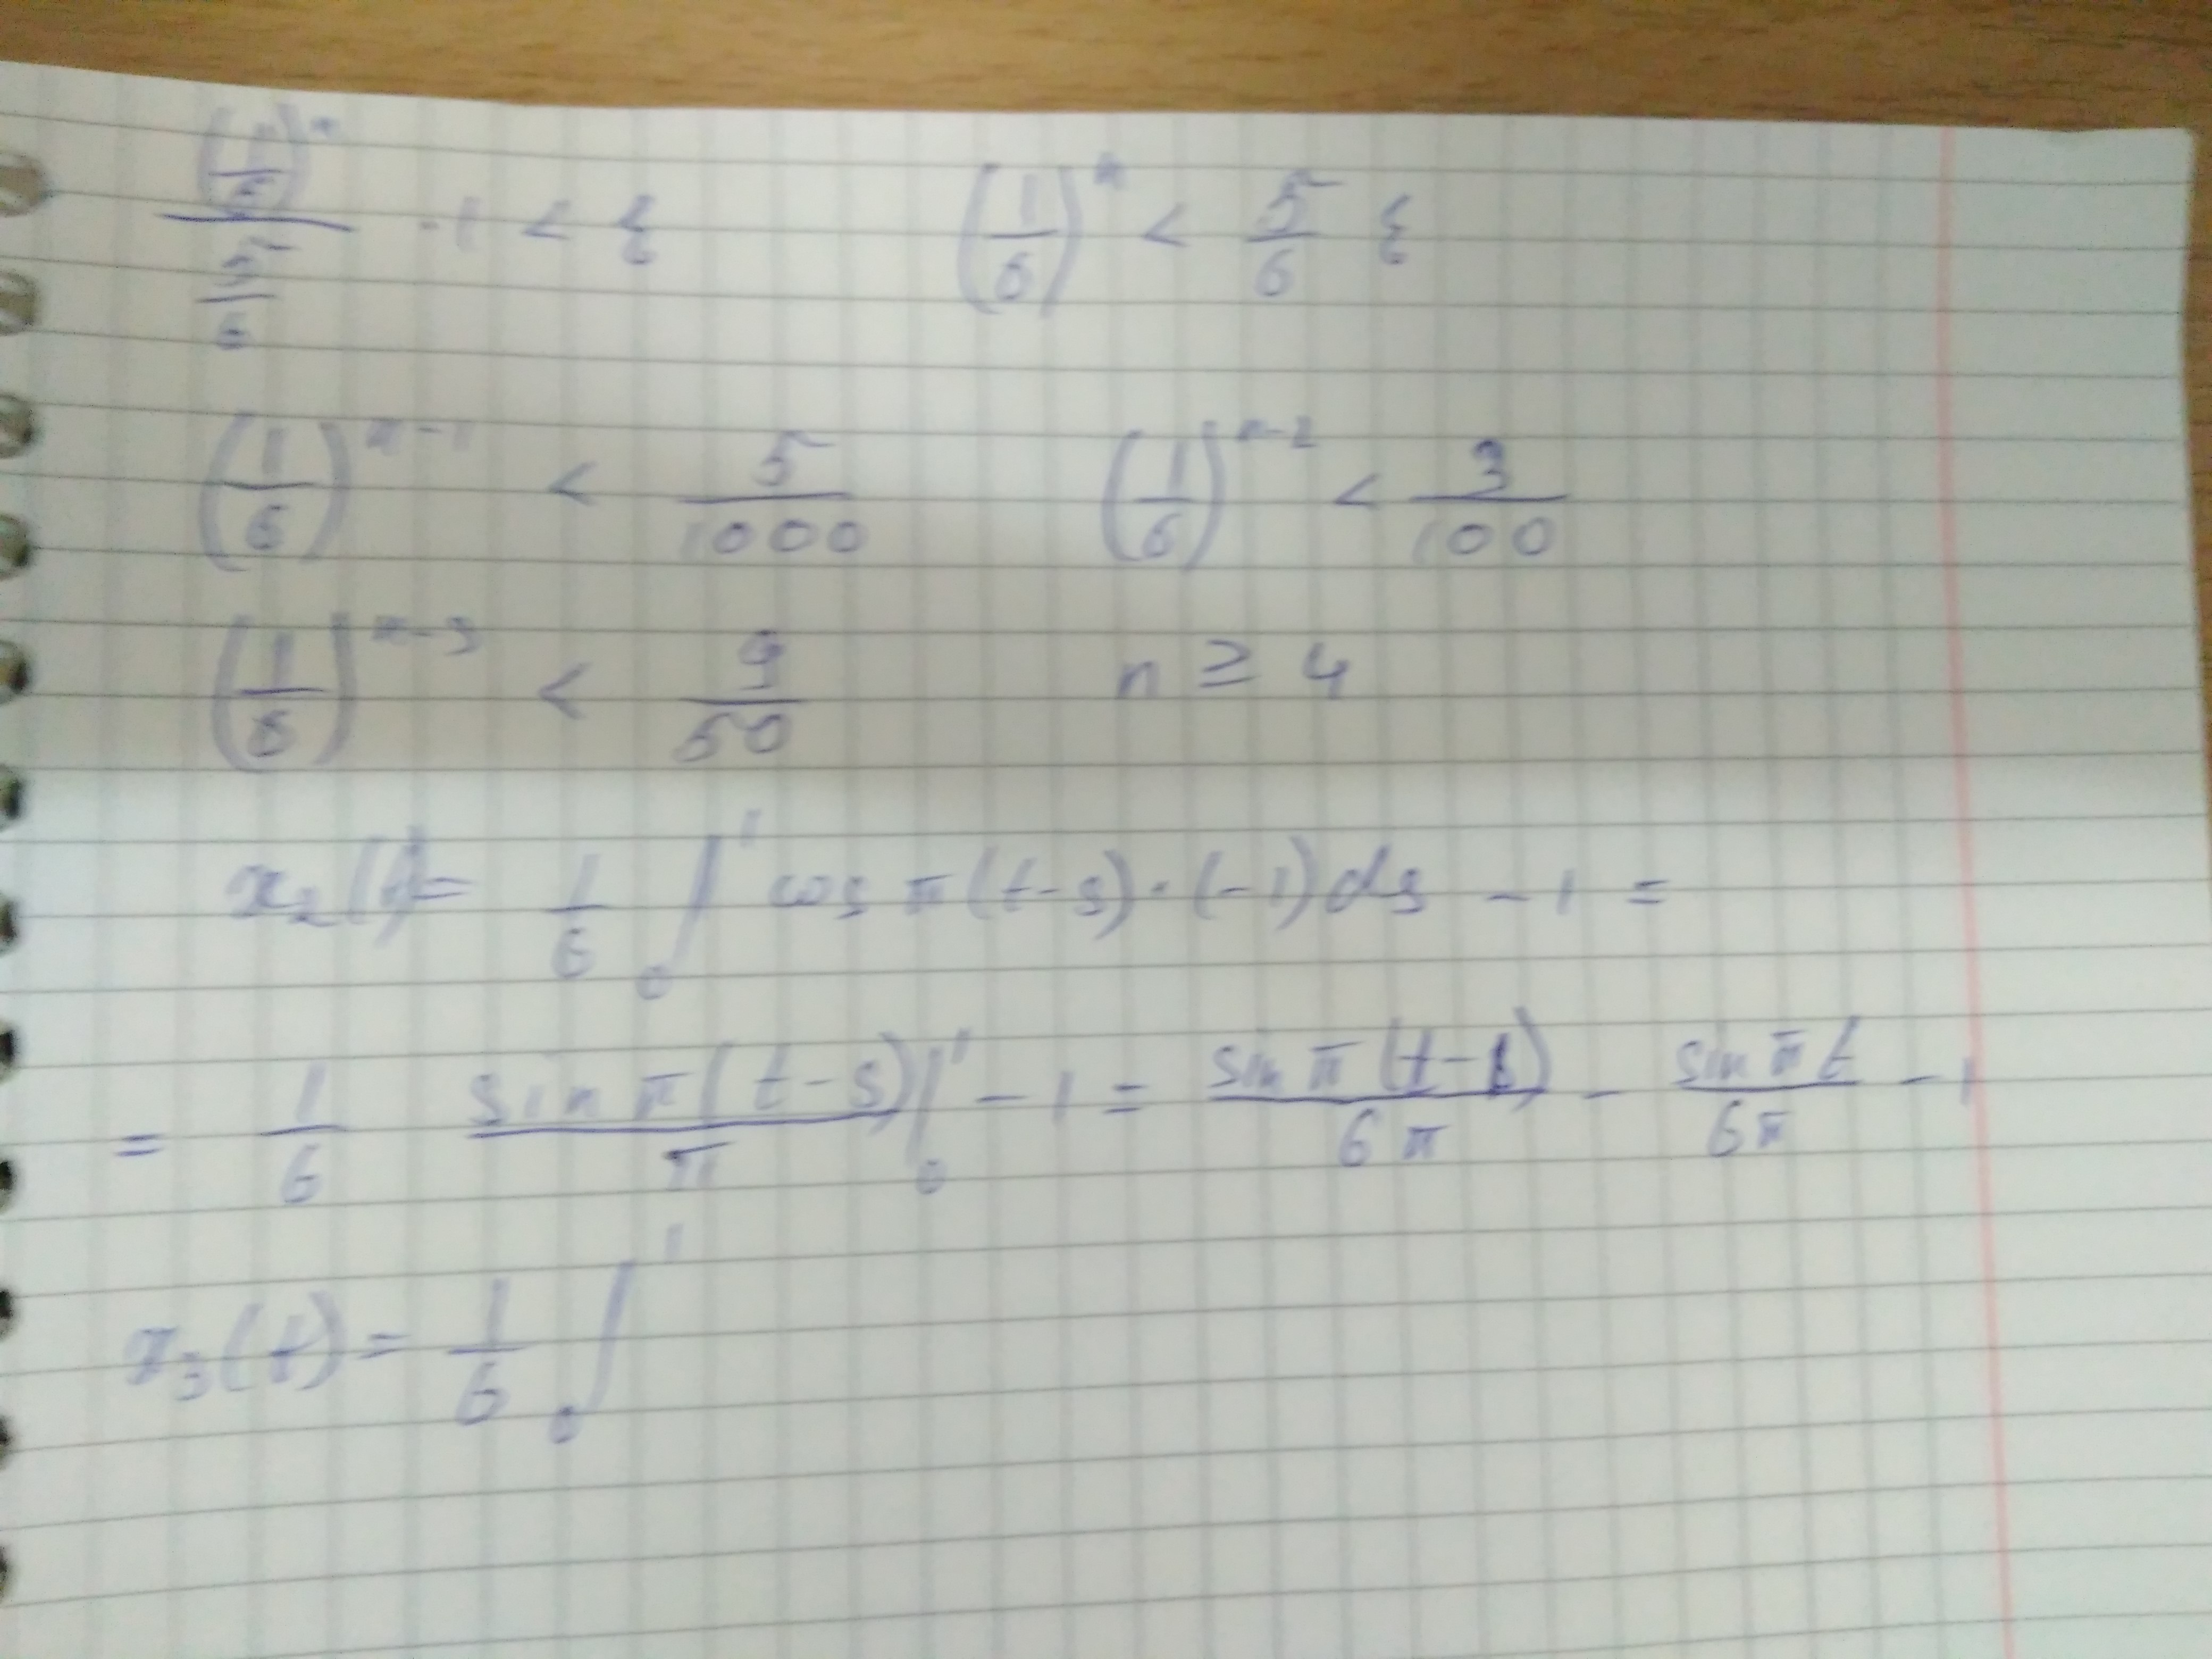 (1/6)^n / (5/6) · 1 < ξ (1/6)^n < 5/6 ξ
(1/6)^(n-1) < 5/1000 (1/6)^(n-2) < 3/100
(1/6)^(n-3) < 9/50 n ≥ 4
x₂(t) = 1/6 ₀∫¹ cos π(t-s)·(-1)ds - 1 =
= 1/6 sin π(t-s)/π |₀¹ - 1 = sin π(t-1)/6π - sin πt/6π - 1
x₃(t) = 1/6 ₀∫¹